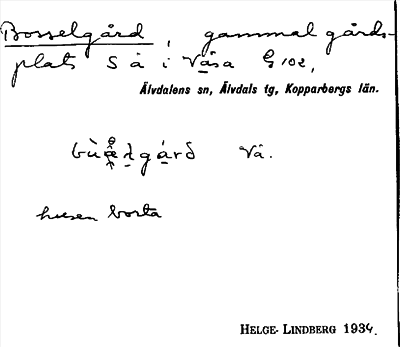 Bosselgård, gammal gårds-
plats S å i Våsa G 102,
Älvdalens sn, Älvdals tg, Kopparbergs län.
Vå.
husen borta
HELGE LINDBERG 1934.